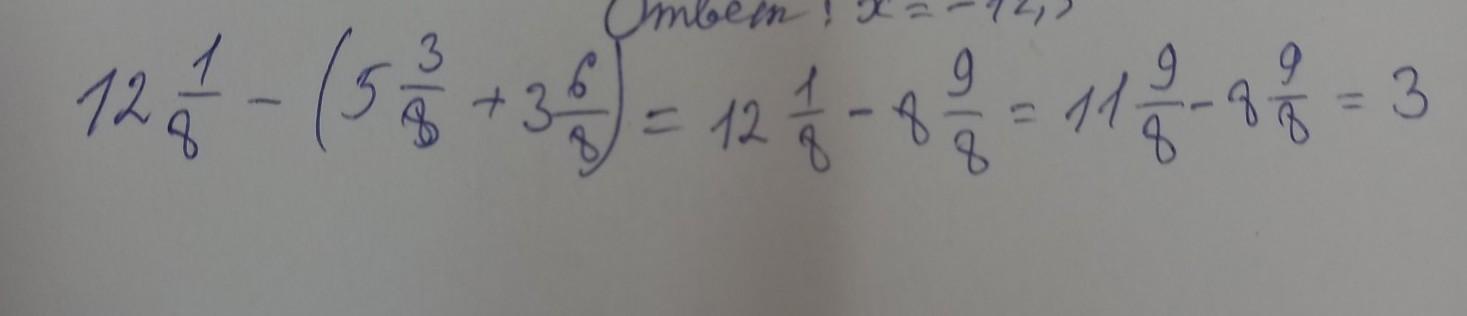 Ответ: x = -12,5
12 1/8 - (5 3/8 + 3 6/8) = 12 1/8 - 8 9/8 = 11 9/8 - 8 9/8 = 3